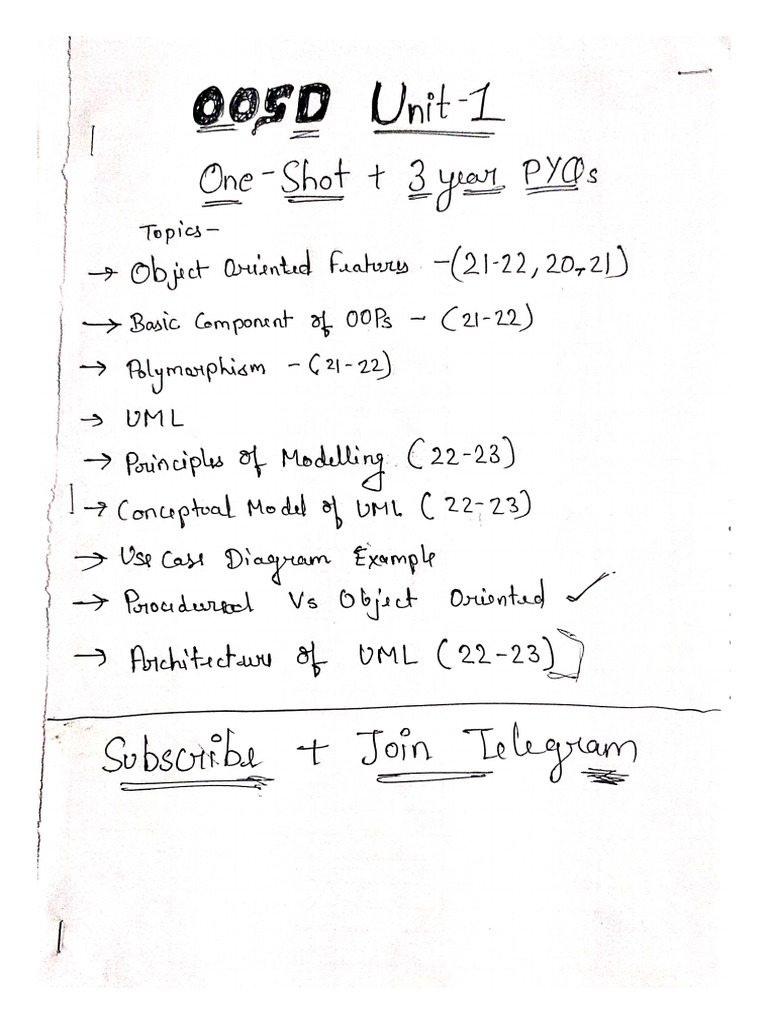 OOSD Unit-1
One-Shot + 3 year PYQs
Topics-
→ Object Oriented Features -(21-22, 20-21)
→ Basic Component of OOPs - (21-22)
→ Polymorphism - (21-22)
→ UML
→ Principles of Modelling (22-23)
→ Conceptual Model of UML (22-23)
→ Use Case Diagram Example
→ Procedural Vs Object Oriented ✓
→ Architecture of UML (22-23)]
Subscribe + Join Telegram